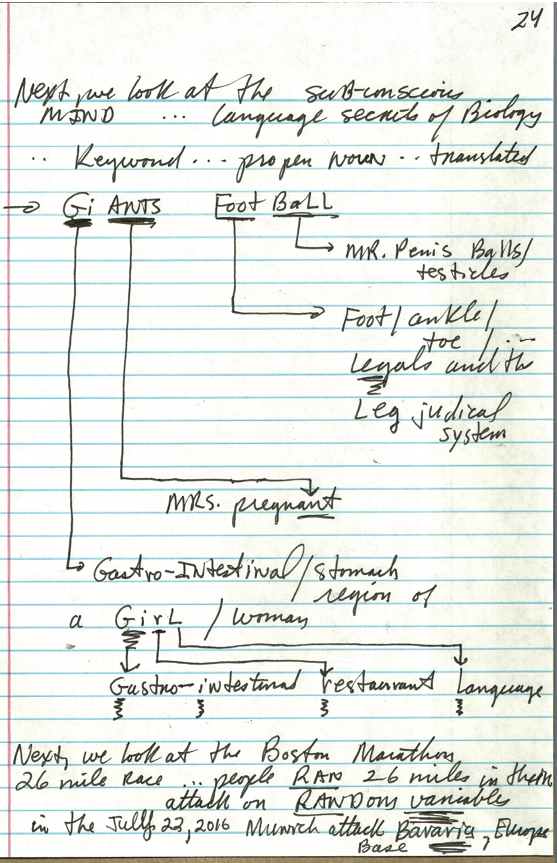 24
Next, we look at the sub-conscious
MIND ... language secrets of Biology
.. Keyword ... proper noun .. translated
→ Gi ANTS Foot BaLL
MR. Penis Balls/
testicles
Foot / ankle /
toe / ...
Legals and the
Leg judical
system
MRS. pregnant
Gastro-INtestinal / stomach
region of
a GirL / woman
Gastro-intestinal restaurant Language
Next, we look at the Boston Marathon
26 mile race ... people RAN 26 miles in their
attack on RANDom variables
in the July 22, 2016 Munich attack Bavaria, Europe
Base